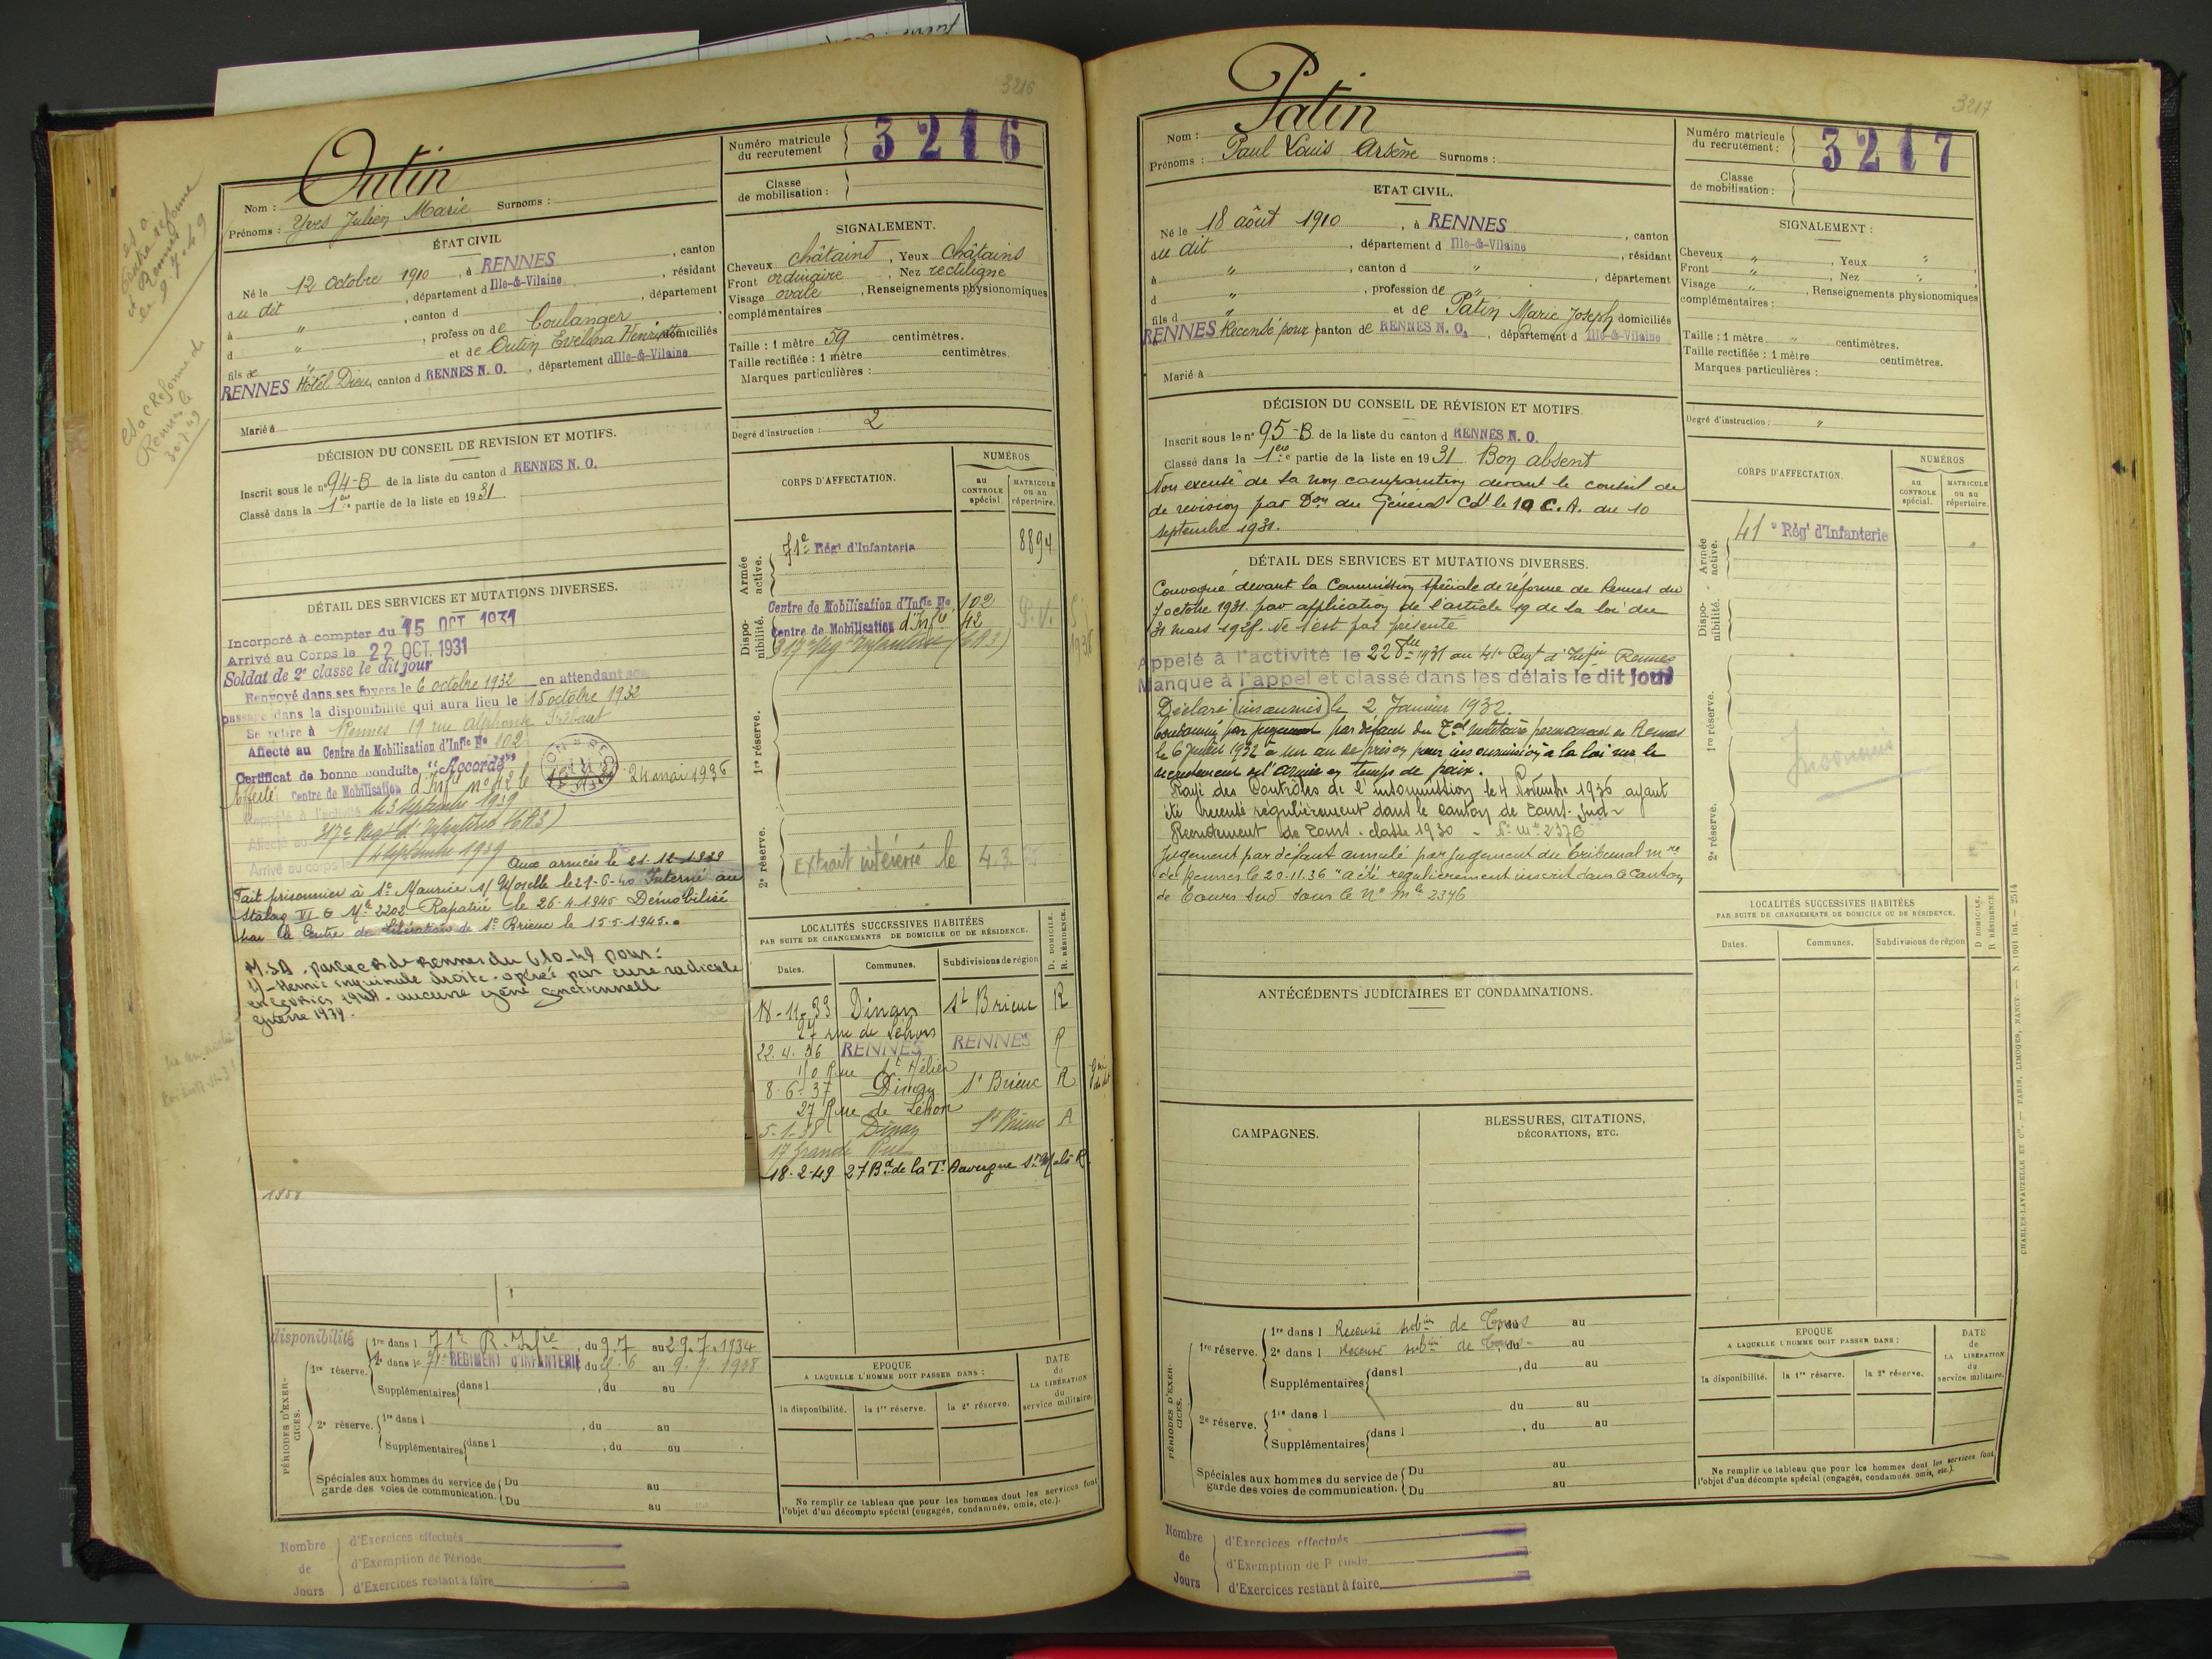 3216
Outin
Nom :
Prénoms : Yves Julien Marie Surnoms :
Numéro matricule du recrutement 3216
Classe de mobilisation :
ÉTAT CIVIL
Né le 12 octobre 1910, à RENNES, canton
du dit, département d Ille-&-Vilaine, résidant
à ", canton d, département
d ", profession de boulanger
fils de " et de Outin Evelina Henriette domiciliés
RENNES Hôtel Dieu, canton d RENNES N. O., département d Ille-&-Vilaine
Marié à
SIGNALEMENT.
Cheveux châtains, Yeux châtains
Front ordinaire, Nez rectiligne
Visage ovale, Renseignements physionomiques
complémentaires
Taille : 1 mètre 59 centimètres.
Taille rectifiée : 1 mètre centimètres.
Marques particulières :
Degré d'instruction : 2
DÉCISION DU CONSEIL DE REVISION ET MOTIFS.
Inscrit sous le n° 94-B de la liste du canton d RENNES N. O.
Classé dans la 1ère partie de la liste en 1931
DÉTAIL DES SERVICES ET MUTATIONS DIVERSES.
Incorporé à compter du 15 OCT 1931
Arrivé au Corps le 22 OCT. 1931
Soldat de 2e classe le dit jour
Renvoyé dans ses foyers le 6 octobre 1932 en attendant son
passage dans la disponibilité qui aura lieu le 15 octobre 1932
Se retire à Rennes 19 rue Alphonse
Affecté au Centre de Mobilisation d'Infie No 102
Certificat de bonne conduite "Accordé"
Affecté Centre de Mobilisation d'Infie n° 42 le 24 mai 1936
Rappelé à l'activité le 3 septembre 1939
Affecté au 317e Regt d'Infanterie (6A3)
Arrivé au corps le 4 septembre 1939 Aux armées le 21-12-1939
Fait prisonnier à St Maurice s/ Moselle le 21-6-40 Interné au
Stalag VI G Mle 2202 Rapatrié le 26-4-1945 Démobilisé
par le Centre de Libération de St Brieuc le 15-5-1945.
M.S.A. par la C R de Rennes du 6-10-49 pour :
1) - Hernie inguinale droite - opérée par cure radicale
aucune gêne fonctionnelle
guerre 1939.
CORPS D'AFFECTATION.
NUMÉROS
au CONTROLE spécial.
MATRICULE ou au répertoire.
Armée active.
71e Régt d'Infanterie 8894
Dispo- nibilité.
Centre de Mobilisation d'Infie No 102
Centre de Mobilisation d'Infie 42
317e Reg d'Infanterie (6A3)
1re réserve.
2e réserve.
Extrait intéressé le 4.3
LOCALITÉS SUCCESSIVES HABITÉES
PAR SUITE DE CHANGEMENTS DE DOMICILE OU DE RÉSIDENCE.
D. DOMICILE. R. RÉSIDENCE.
Dates. Communes. Subdivisions de région
18-11-33 Dinan St Brieuc R
27 rue de Léhon
22.4.36 RENNES RENNES R
Rue St Hélier
8-6-37 Dinan St Brieuc R
27 Rue de Léhon
5-1-38 Dinan St Brieuc A
17 Grande Rue
18-2-49 27 Bd de la Tr Auvergne St Malo R.
PÉRIODES D'EXER- CICES.
disponibilité
1re réserve. 1re dans l 71e R. Infie, du 9.7 au 29.7.1934
2e dans le 71e REGIMENT D'INFANTERIE du 21.6 au 9.7.1938
Supplémentaires dans l, du au
2e réserve. 1re dans l, du au
Supplémentaires dans l, du au
Spéciales aux hommes du service de garde des voies de communication. Du au
Du au
EPOQUE
A LAQUELLE L'HOMME DOIT PASSER DANS :
la disponibilité. la 1re réserve. la 2e réserve.
DATE de LA LIBÉRATION du service militaire.
Ne remplir ce tableau que pour les hommes dont les services font
l'objet d'un décompte spécial (engagés, condamnés, omis, etc.).
Nombre de Jours
d'Exercices effectués
d'Exemption de Période
d'Exercices restant à faire
3217
Patin
Nom :
Prénoms : Paul Louis Arsène Surnoms :
Numéro matricule du recrutement : 3217
Classe de mobilisation :
ETAT CIVIL.
Né le 18 août 1910, à RENNES, canton
du dit, département d Ille-&-Vilaine, résidant
à ", canton d ", département
d ", profession de "
fils d " et de Patin Marie Joseph domiciliés
RENNES Recensé pour canton de RENNES N. O., département d Ille-&-Vilaine
Marié à
SIGNALEMENT :
Cheveux ", Yeux "
Front ", Nez "
Visage ", Renseignements physionomiques
complémentaires :
Taille : 1 mètre " centimètres.
Taille rectifiée : 1 mètre centimètres.
Marques particulières :
Degré d'instruction : "
DÉCISION DU CONSEIL DE RÉVISION ET MOTIFS.
Inscrit sous le n° 95-B de la liste du canton d RENNES N. O.
Classé dans la 1ère partie de la liste en 1931 Bon absent
Non excusé de sa non comparution devant le conseil de
de revision par Don du Général Cdt le 10 C. A. du 10
septembre 1931.
DÉTAIL DES SERVICES ET MUTATIONS DIVERSES.
Convoqué devant la Commission spéciale de réforme de Rennes du
7 octobre 1931 par application de l'article 19 de la loi du
31 mars 1928. Ne s'est pas présenté
Appelé à l'activité le 22 8bre 1931 au 41e Regt d'Infie Rennes
Manque à l'appel et classé dans les délais le dit jour
Déclaré insoumis le 2 Janvier 1932.
Condamné par jugement par défaut du Tal militaire permanent de Rennes
le 6 juillet 1932 à un an de prison pour insoumission à la loi sur le
recrutement de l'armée en temps de paix.
Rayé des Contrôles de l'insoumission le 4 Novembre 1936 ayant
été recensé régulièrement dans le canton de Tours-Sud
Recrutement de Tours - classe 1930 - No Mle 2376
Jugement par défaut annulé par jugement du Tribunal mre
de Rennes le 20-11.36 "a été régulièrement inscrit dans le Canton
de Tours Sud sous le No mle 2376
CORPS D'AFFECTATION.
NUMÉROS
au CONTROLE spécial.
MATRICULE ou au répertoire.
Armée active.
41e Régt d'Infanterie "
Dispo- nibilité.
1re réserve.
Insoumis
2e réserve.
ANTÉCÉDENTS JUDICIAIRES ET CONDAMNATIONS.
CAMPAGNES.
BLESSURES, CITATIONS, DÉCORATIONS, ETC.
LOCALITÉS SUCCESSIVES HABITÉES
PAR SUITE DE CHANGEMENTS DE DOMICILE OU DE RÉSIDENCE.
D DOMICILE. R RÉSIDENCE.
Dates. Communes. Subdivisions de région
PÉRIODES D'EXER- CICES.
1re réserve. 1re dans l Recensé subon de Tours au
2e dans l Recensé subon de Tours du au
Supplémentaires dans l, du au
2e réserve. 1re dans l du au
Supplémentaires dans l, du au
Spéciales aux hommes du service de garde des voies de communication. Du au
Du au
EPOQUE
A LAQUELLE L'HOMME DOIT PASSER DANS :
la disponibilité. la 1re réserve. la 2e réserve.
DATE de LA LIBÉRATION du service militaire.
Ne remplir ce tableau que pour les hommes dont les services font
l'objet d'un décompte spécial (engagés, condamnés, omis, etc.).
CHARLES-LAVAUZELLE ET Cie. — PARIS, LIMOGES, NANCY.
Nombre de Jours
d'Exercices effectués
d'Exemption de Période
d'Exercices restant à faire